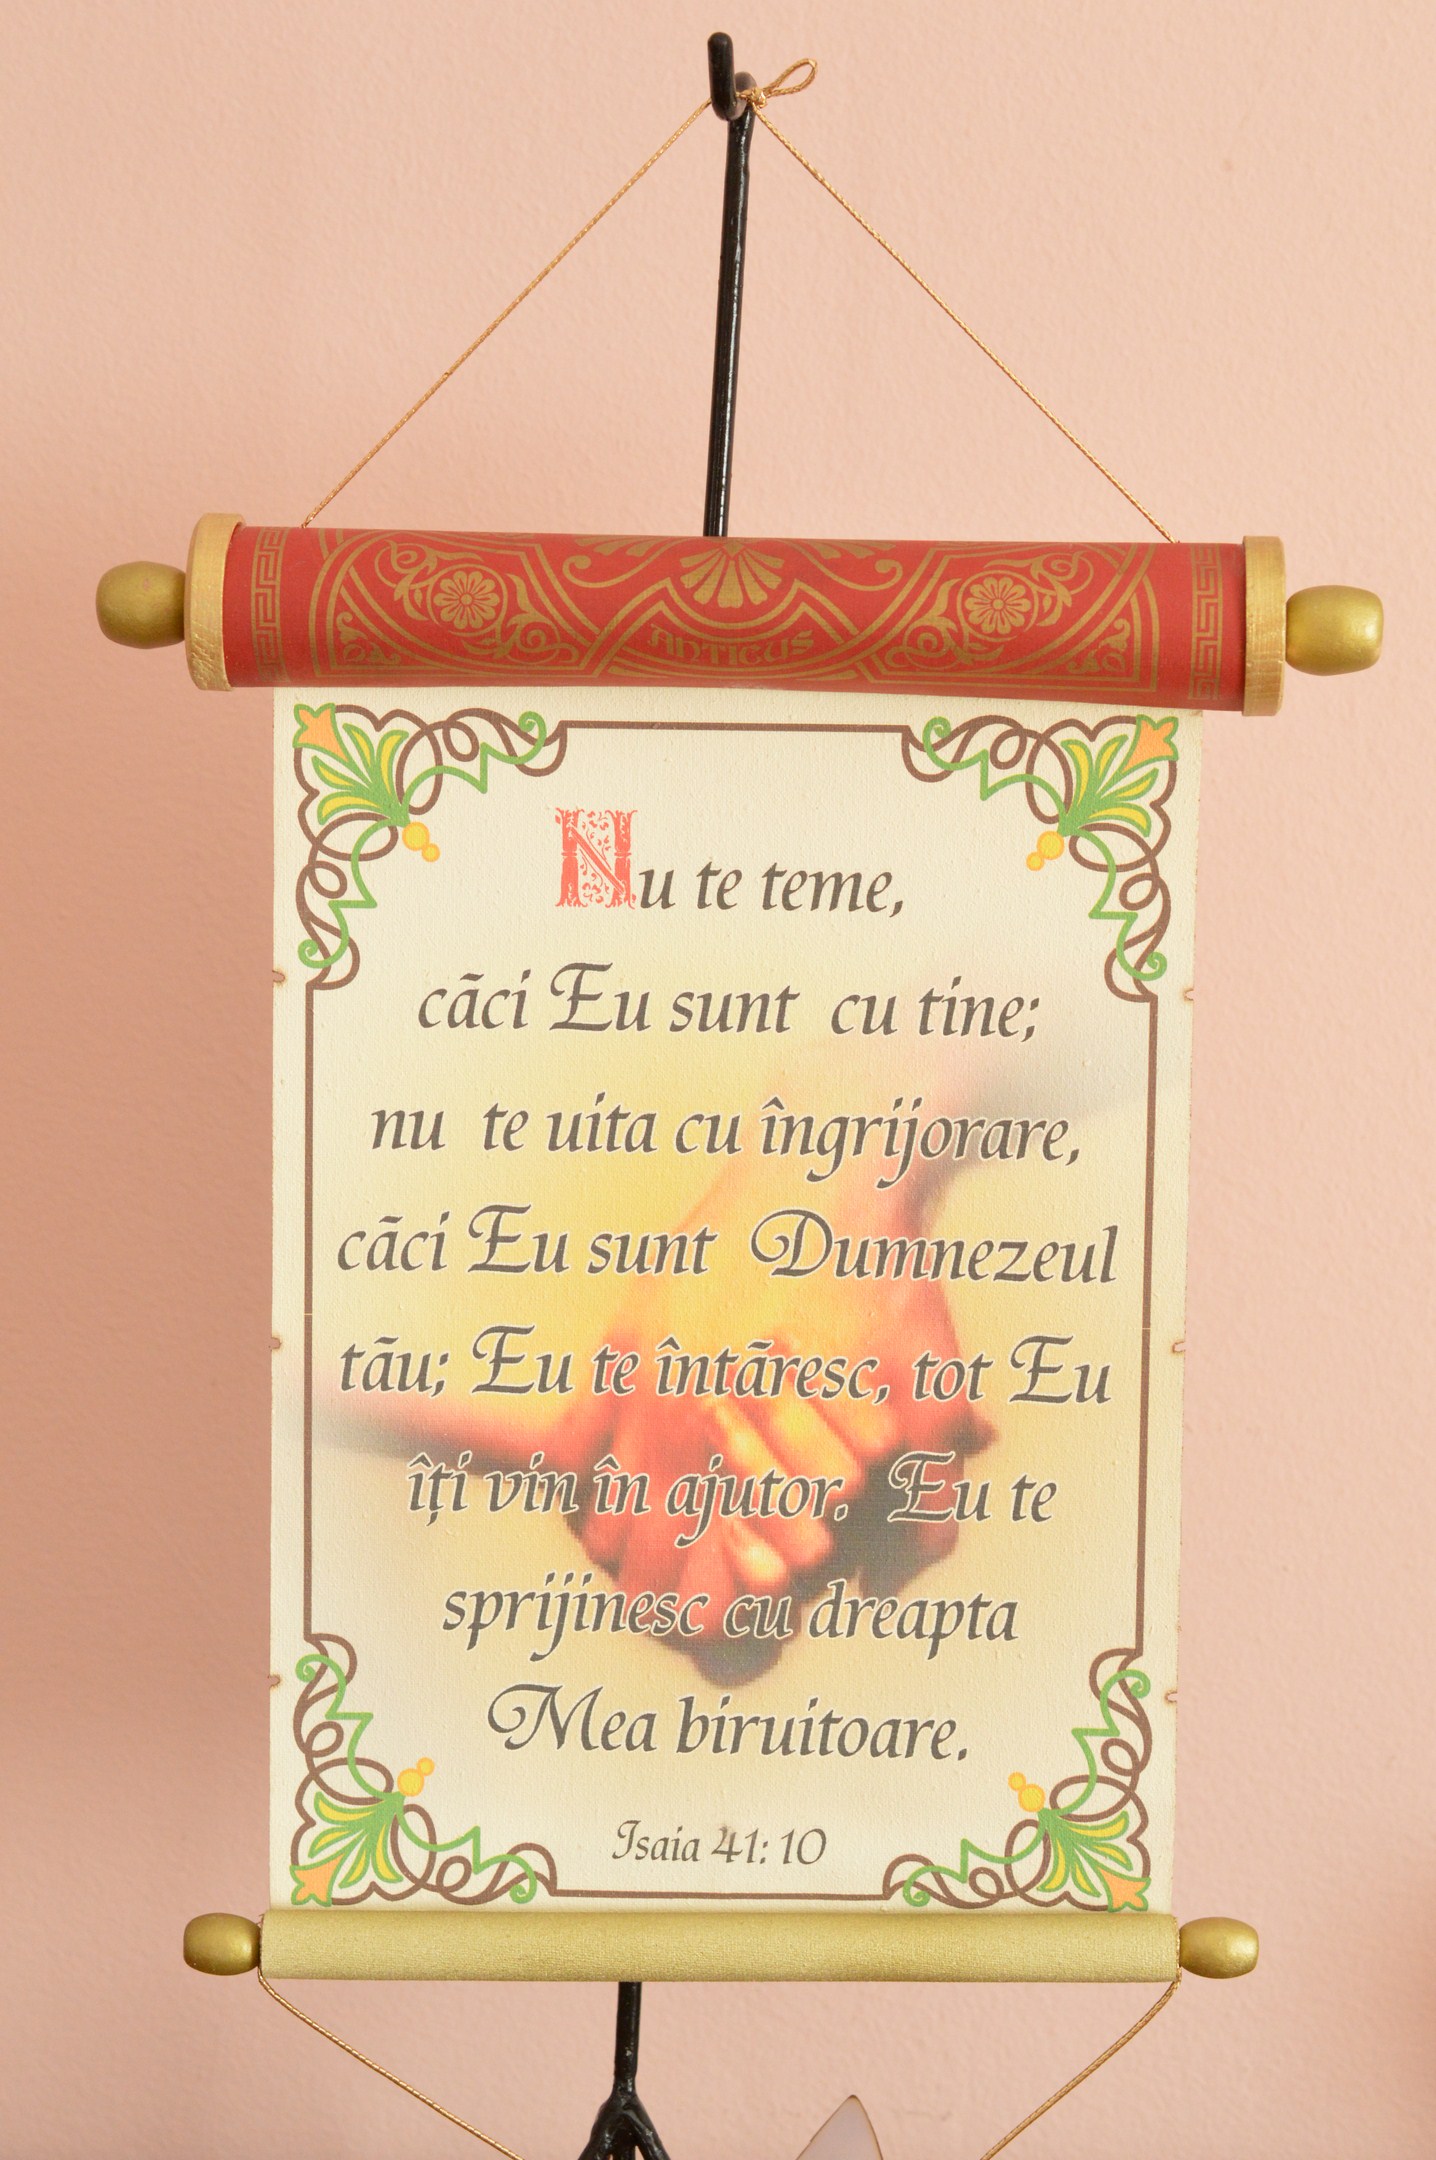 ANTICUS
Nu te teme,
căci Eu sunt cu tine;
nu te uita cu îngrijorare,
căci Eu sunt Dumnezeul
tău; Eu te întăresc, tot Eu
îți vin în ajutor. Eu te
sprijinesc cu dreapta
Mea biruitoare.
Isaia 41: 10